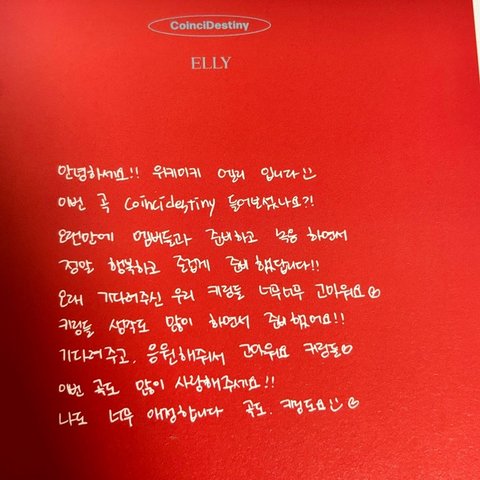 CoinciDestiny
ELLY
안녕하세요!! 위키미키 엘리 입니다
이번 곡 Coincidestiny 들어보셨나요?!
오랜만에 멤버들과 준비하고 녹음 하면서
정말 행복하고 즐겁게 준비 했답니다!!
오래 기다려주신 우리 키링들 너무너무 고마워요
키링들 생각도 많이 하면서 준비했어요!!
기다려주고, 응원해줘서 고마워요 키링들
이번 곡도 많이 사랑해주세요!!
나도 너무 애정합니다 곡도, 키링도요